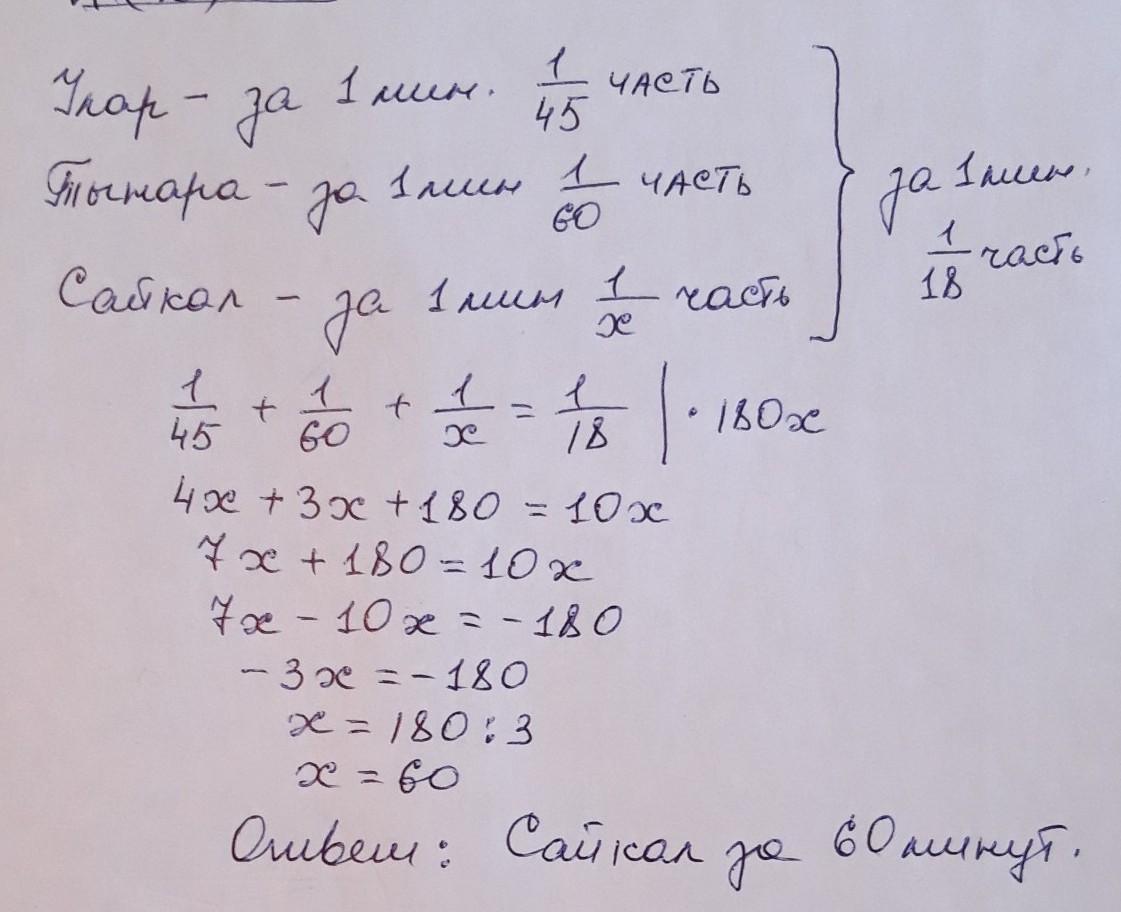 Улар – за 1 мин. 1/45 часть
Тынара – за 1 мин 1/60 часть
Сайкал – за 1 мин 1/x часть
за 1 мин.
1/18 часть
1/45 + 1/60 + 1/x = 1/18 | · 180x
4x + 3x + 180 = 10x
7x + 180 = 10x
7x - 10x = -180
-3x = -180
x = 180 : 3
x = 60
Ответ: Сайкал за 60 минут.